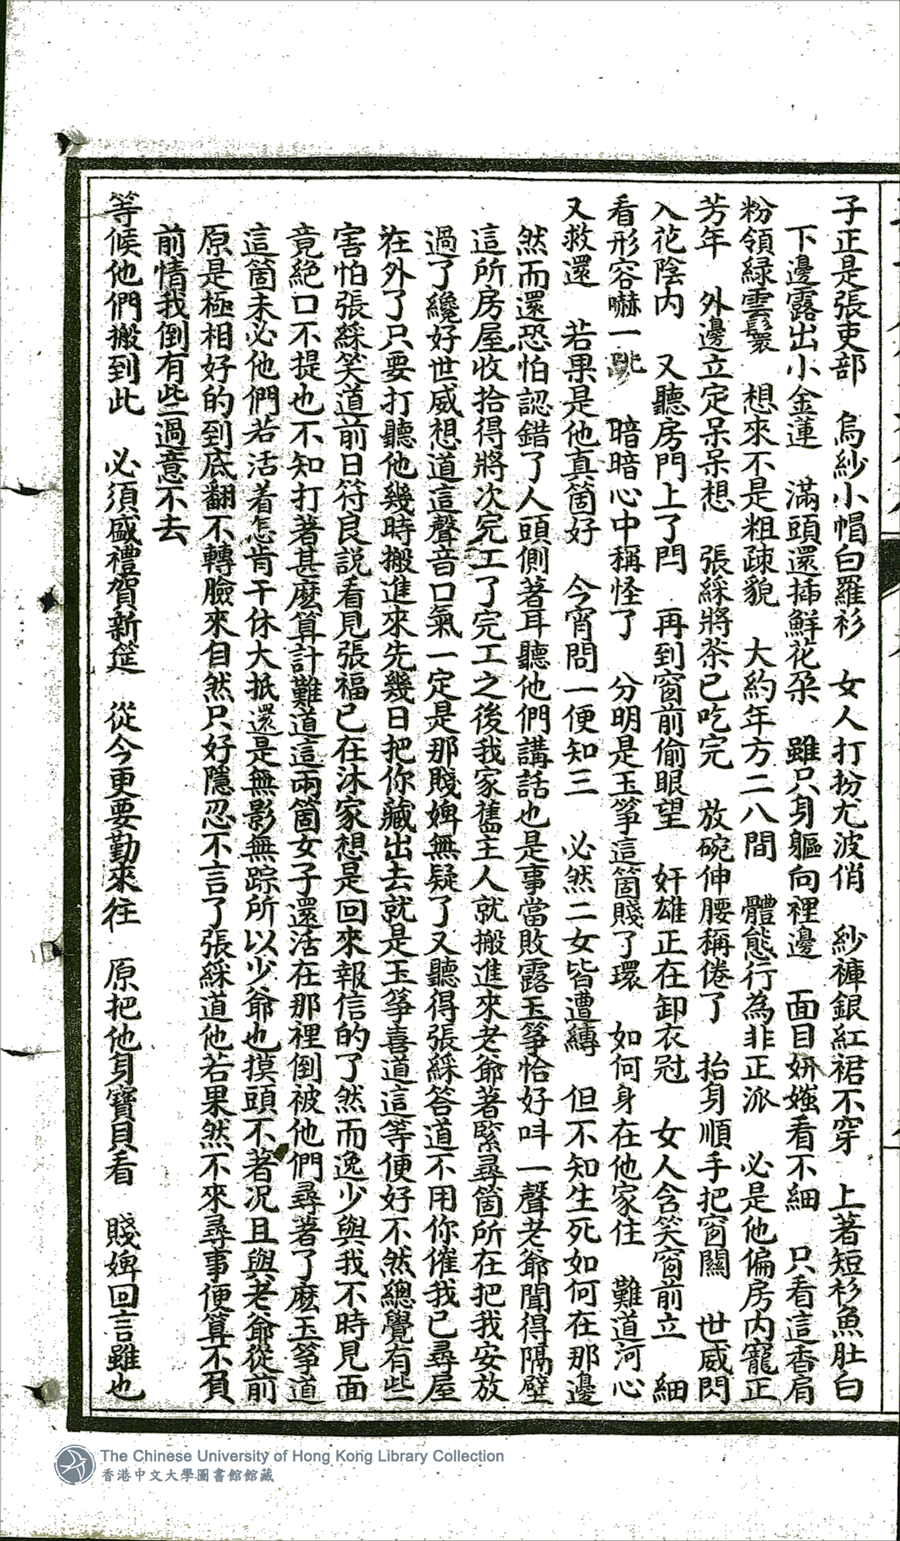 子正是張吏部　烏紗小帽白羅衫　女人打扮尤波俏　紗褲銀紅裙不穿　上著短衫魚肚白
下邊露出小金蓮　滿頭還插鮮花朶　雖只身軀向裡邊　面目妍媸看不細　只看這香肩
粉領緑雲鬟　想來不是粗疎貌　大約年方二八間　體態行為非正派　必是他偏房內寵正
芳年　外邊立定呆呆想　張綵將茶已吃完　放碗伸腰稱倦了　抬身順手把窗關　世威閃
入花陰內　又聽房門上了閂　再到窗前偷眼望　奸雄正在卸衣冠　女人含笑窗前立　細
看形容嚇一跳　暗暗心中稱怪了　分明是玉箏這箇賤了環　如何身在他家住　難道河心
又救還　若果是他真箇好　今宵問一便知三　必然二女皆遭縛　但不知生死如何在那邊
然而還恐怕認錯了人頭側著耳聽他們講話也是事當敗露玉箏恰好呌一聲老爺聞得隔壁
這所房屋收拾得將次完工了完工之後我家舊主人就搬進來老爺著緊尋箇所在把我安放
過了纔好世威想道這聲音口氣一定是那賤婢無疑了又聽得張綵答道不用你催我已尋屋
在外了只要打聽他幾時搬進來先幾日把你藏出去就是玉箏喜道這等便好不然總覺有些
害怕張綵笑道前日符良説看見張福已在沐家想是回來報信的了然而逸少與我不時見面
竟絕口不提也不知打著甚麽算計難道這兩箇女子還活在那裡倒被他們尋著了麽玉箏道
這箇未必他們若活着怎肯干休大抵還是無影無踪所以少爺也摸頭不著况且與老爺從前
原是極相好的到底翻不轉臉來自然只好隱忍不言了張綵道他若果然不來尋事便算不負
前情我倒有些過意不去
等候他們搬到此　必須盛禮賀新筵　從今更要勤來往　原把他身寶貝看　賤婢回言雖也
The Chinese University of Hong Kong Library Collection
香港中文大學圖書館館藏